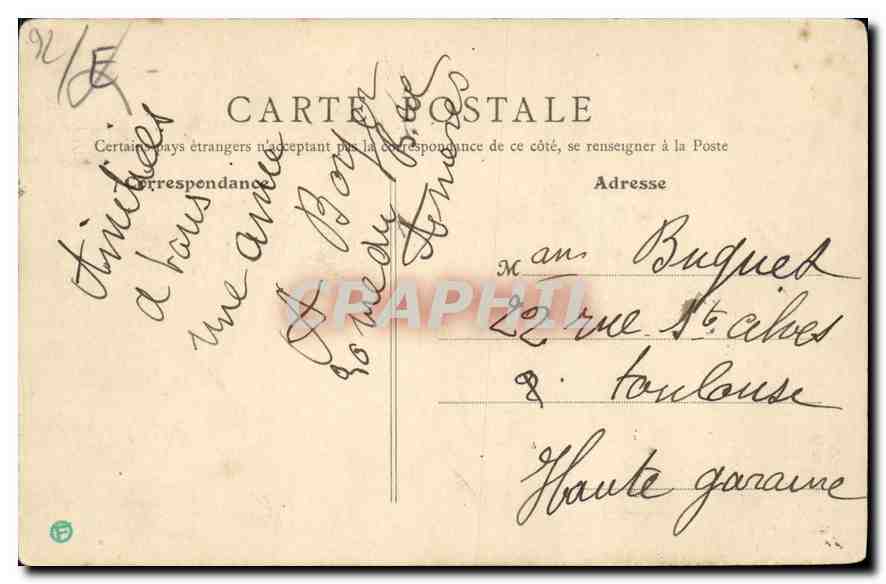 92/
E
CARTE POSTALE
Certains pays étrangers n'acceptant pas la correspondance de ce côté, se renseigner à la Poste
Correspondance
Adresse
Amitiées
a tous
une amie
Boyer
30 rue du
Asnieres
Man Buguet
22 rue Ste
Toulouse
Haute garanne
CRAPHIL
F